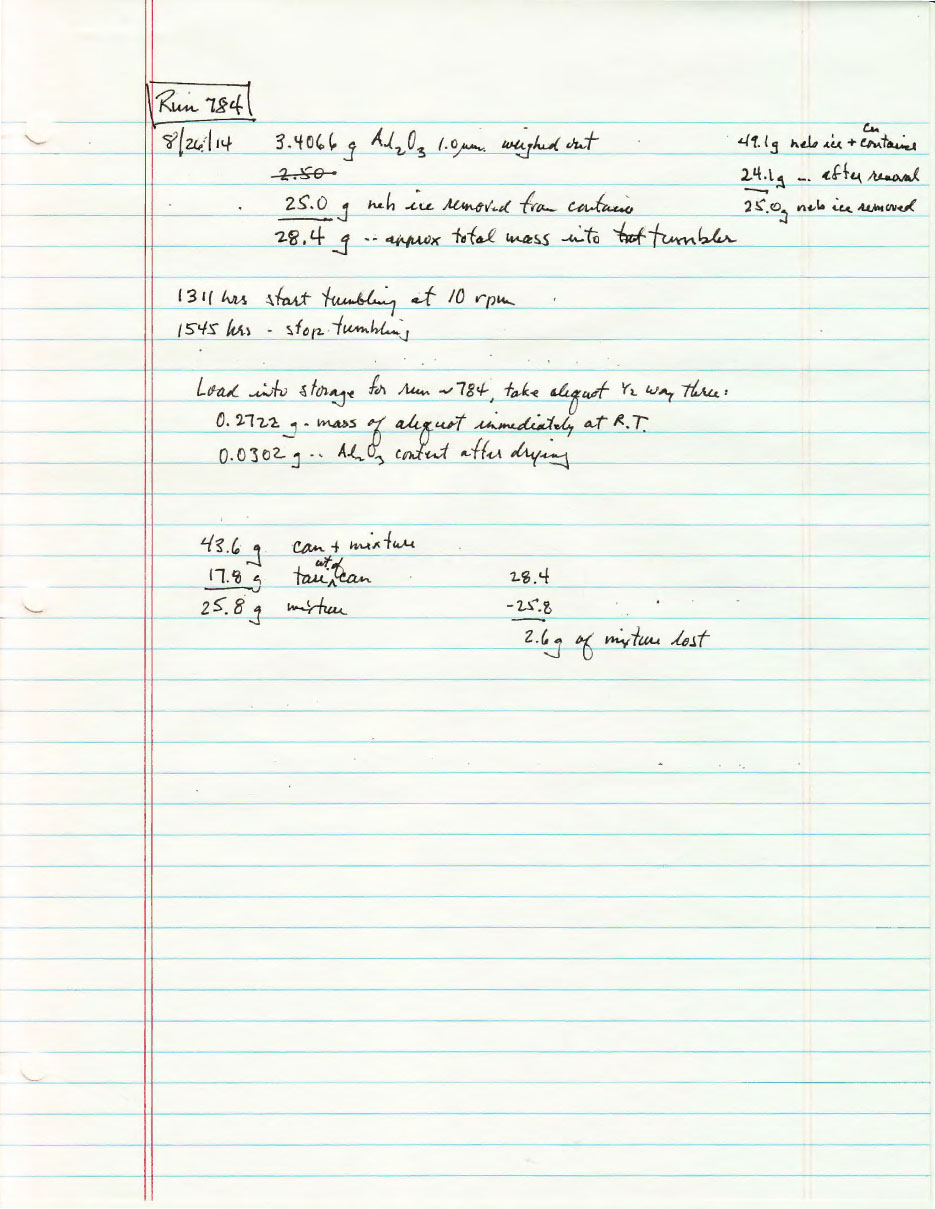 Run 784
8/26/14 3.4066 g Al2O3 1.0 μm weighed out
2.50
25.0 g neb ice removed from container
28.4 g -- approx total mass into tumbler
Cu
49.1g neb ice + container
24.1g -- after removal
25.0g neb ice removed
1311 hrs start tumbling at 10 rpm
1545 hrs - stop tumbling
Load into storage for run ~784, take aliquot 1/2 way three:
0.2722 g - mass of aliquot immediately at R.T.
0.0302 g -- Al2O3 content after drying
43.6 g can + mixture
17.8 g tare wt of can
25.8 g mixture
28.4
-25.8
2.6g of mixture lost